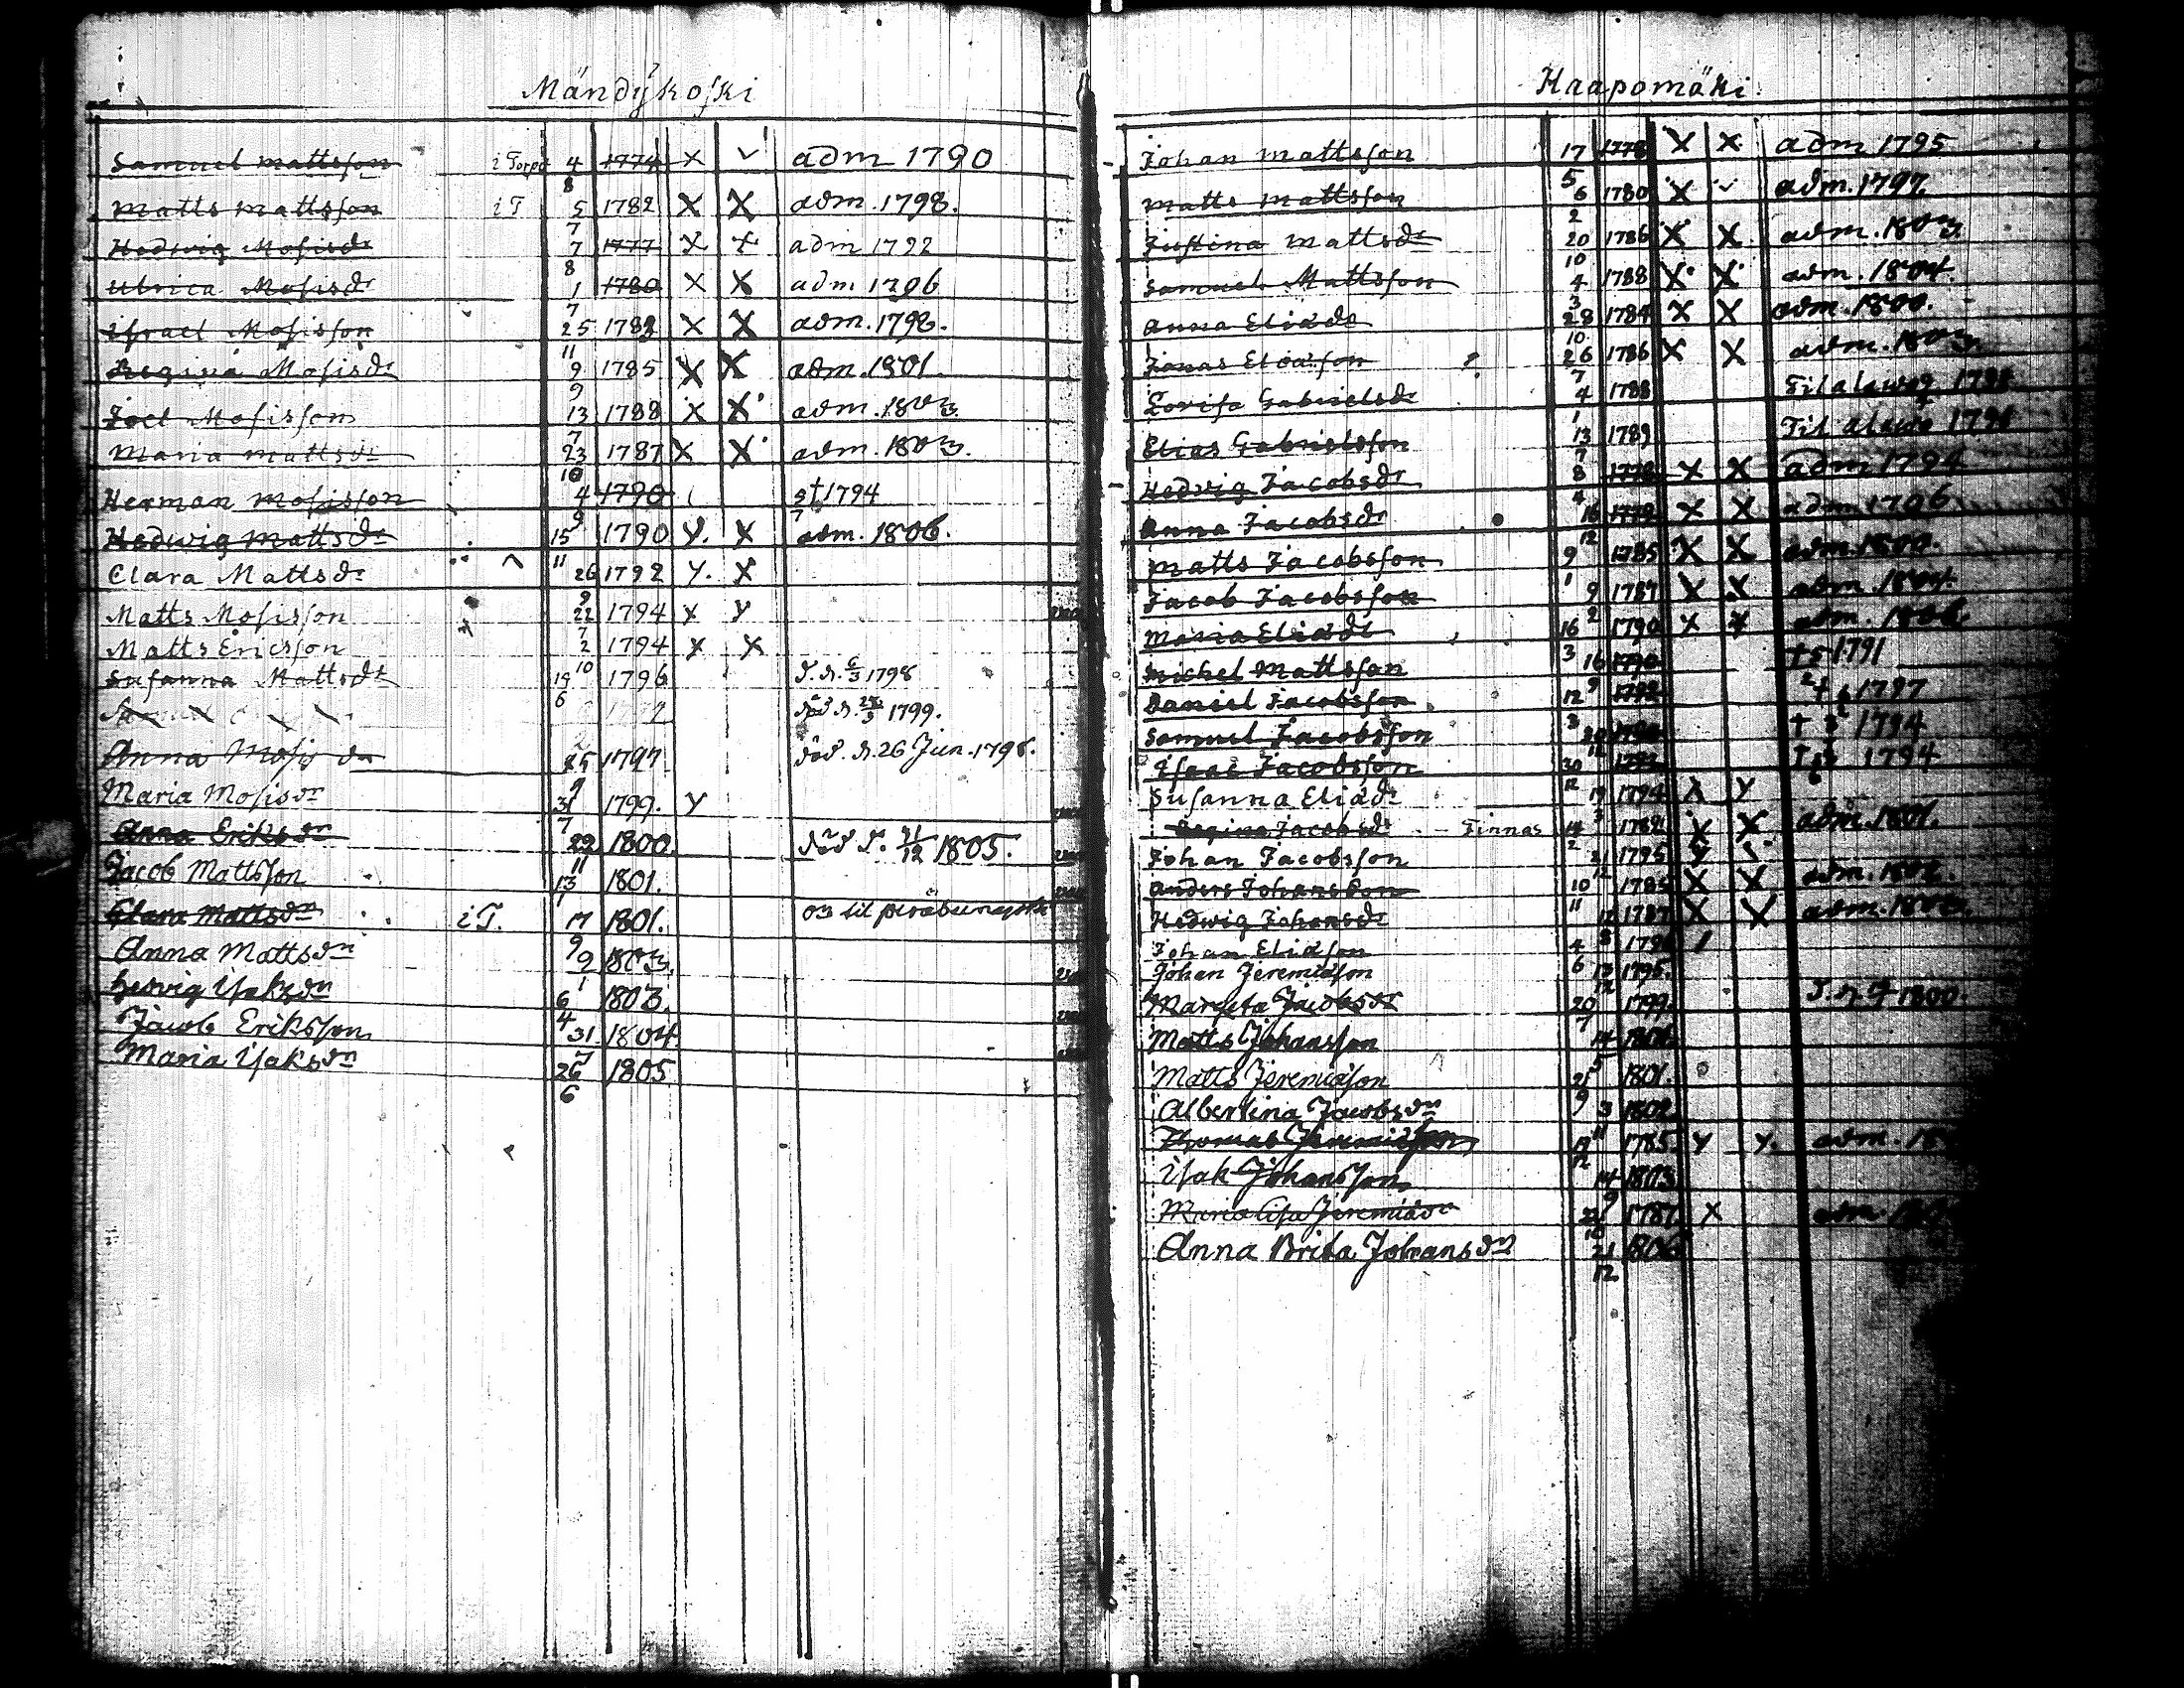 Mändÿkoski
Samuel Mattsson i Torpa 4/8 1774 x adm 1790
Matts Mattsson i T 5/7 1782 X X adm. 1798.
Hedwig Mosisdr 7/8 1777 x x adm 1792
Ulrica Mosisdr 1/7 1780 x x adm 1796
Israel Mosisson 25/11 1782 x X adm. 1798.
Regina Mosisdr 9/9 1785 X X adm. 1801.
Joel Mosisson 13/7 1788 X X adm. 1803
Maria Mattsdr 23/10 1787 X X adm. 1803.
Herman Mosisson 4/9 1790 † 1794
Hedwig Mattsdr 15/11 1790 x. x adm. 1806.
Clara Mattsdr 26/9 1792 y. x
Matts Mosisson 22/7 1794 x y
Matts Ericsson 2/10 1794 x x
Susanna Mattsdr 19/6 1796 d. d. 6/3 1798
död d. 1799.
Anna Mosisdr 25/9 1797 död d. 26 Jun. 1798.
Maria Mosisdr 31/7 1799. y
Anna Eriksdr 29/11 1800. död d. 21/12 1805.
Jacob Mattsson 13/1 1801.
Clara Mattsdr i T. 17/9 1801.
Anna Mattsdn 9/1 1803.
Hedvig Isaksdn 6/4 1803.
Jacob Eriksson 31/7 1804
Maria Isaksdn 26/6 1805
Haapomäki
Johan Mattsson 17/5 1778 X X adm 1795
Matts Mattsson 6/2 1780 X adm. 1797.
Justina Mattsdr 20/10 1786 X X adm. 1803.
Samuel Mattsson 4/3 1788 X X adm. 1804.
Anna Eliædr 28/10 1784 X X adm. 1800.
Jonas Eliæson 26/7 1786 X X adm. 1803.
Lovisa Gabrielsdr 4/1 1788 Til alawo 1791
Elias Gabrielsson 13/7 1789 Til alawo 1791
Hedvig Jacobsdr 8/4 X X adm 1794
Anna Jacobsdr 16/12 1779 X X adm 1796
Matts Jacobsson 9/1 1785 X X adm. 1800.
Jacob Jacobsson 9/2 1787 X X adm. 1804.
Maria Eliædr 16/3 1790 x x adm. 1806.
Michel Mattsson 16/9 1790 † 1791
Daniel Jacobsson 12/3 1792 † 1797
Samuel Jacobsson † 1794
Isaac Jacobsson 30/12 1792 † 1794
Susanna Eliædr 19/3 1794 X y
Regina Jacobsdr Finnas 1782 X X adm. 1801.
Johan Jacobsson 21/12 1795
Anders Johansson 10/11 1785 X X adm. 1802.
Hedwig Johansdr 12/8 1787 X X adm. 1803.
Johan Eliæson 4/6 179
Johan Jeremiæson 13/12 1795.
Margeta Jacobsdr 20/7 1799. 1800.
Matts Johansson 14/5
Matts Jeremiæson 9 1801.
Albertina Jacobsdn 3/11 1802.
Thomas Jeremiæson 12 1785. y y. adm. 18
Isak Johansson 14/9 1803.
Maria Lisa Jeremiædr 22/10 1787. X adm.
Anna Brita Johansdn 21/12 1806